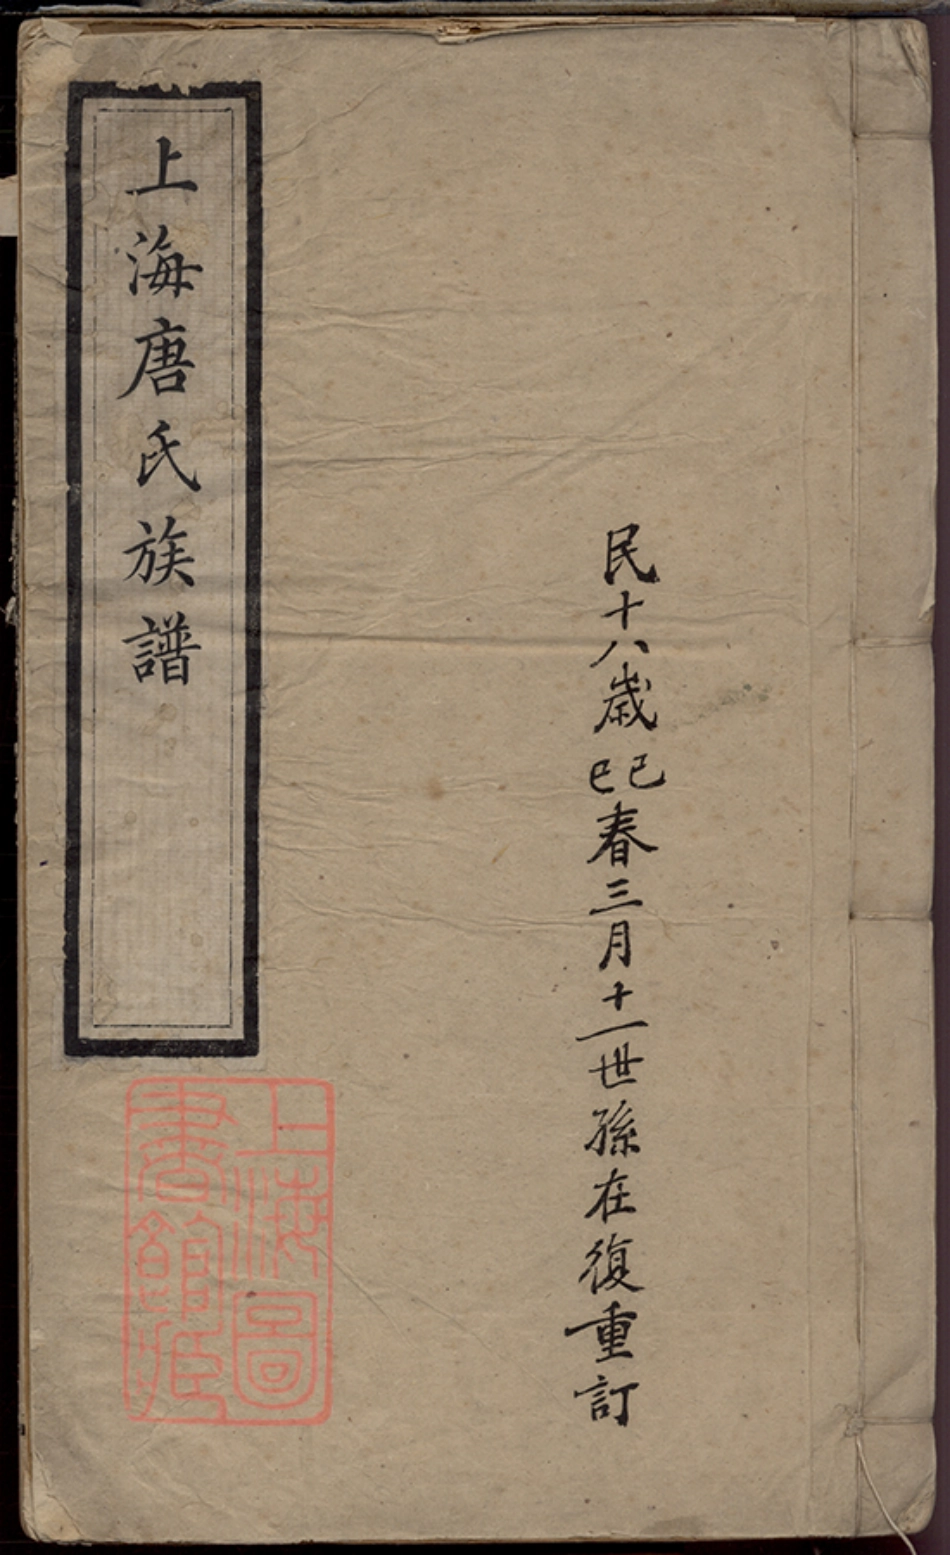 民十八歲己巳春三月十一世孫在復重訂
上海唐氏族譜
上海圖
書館藏